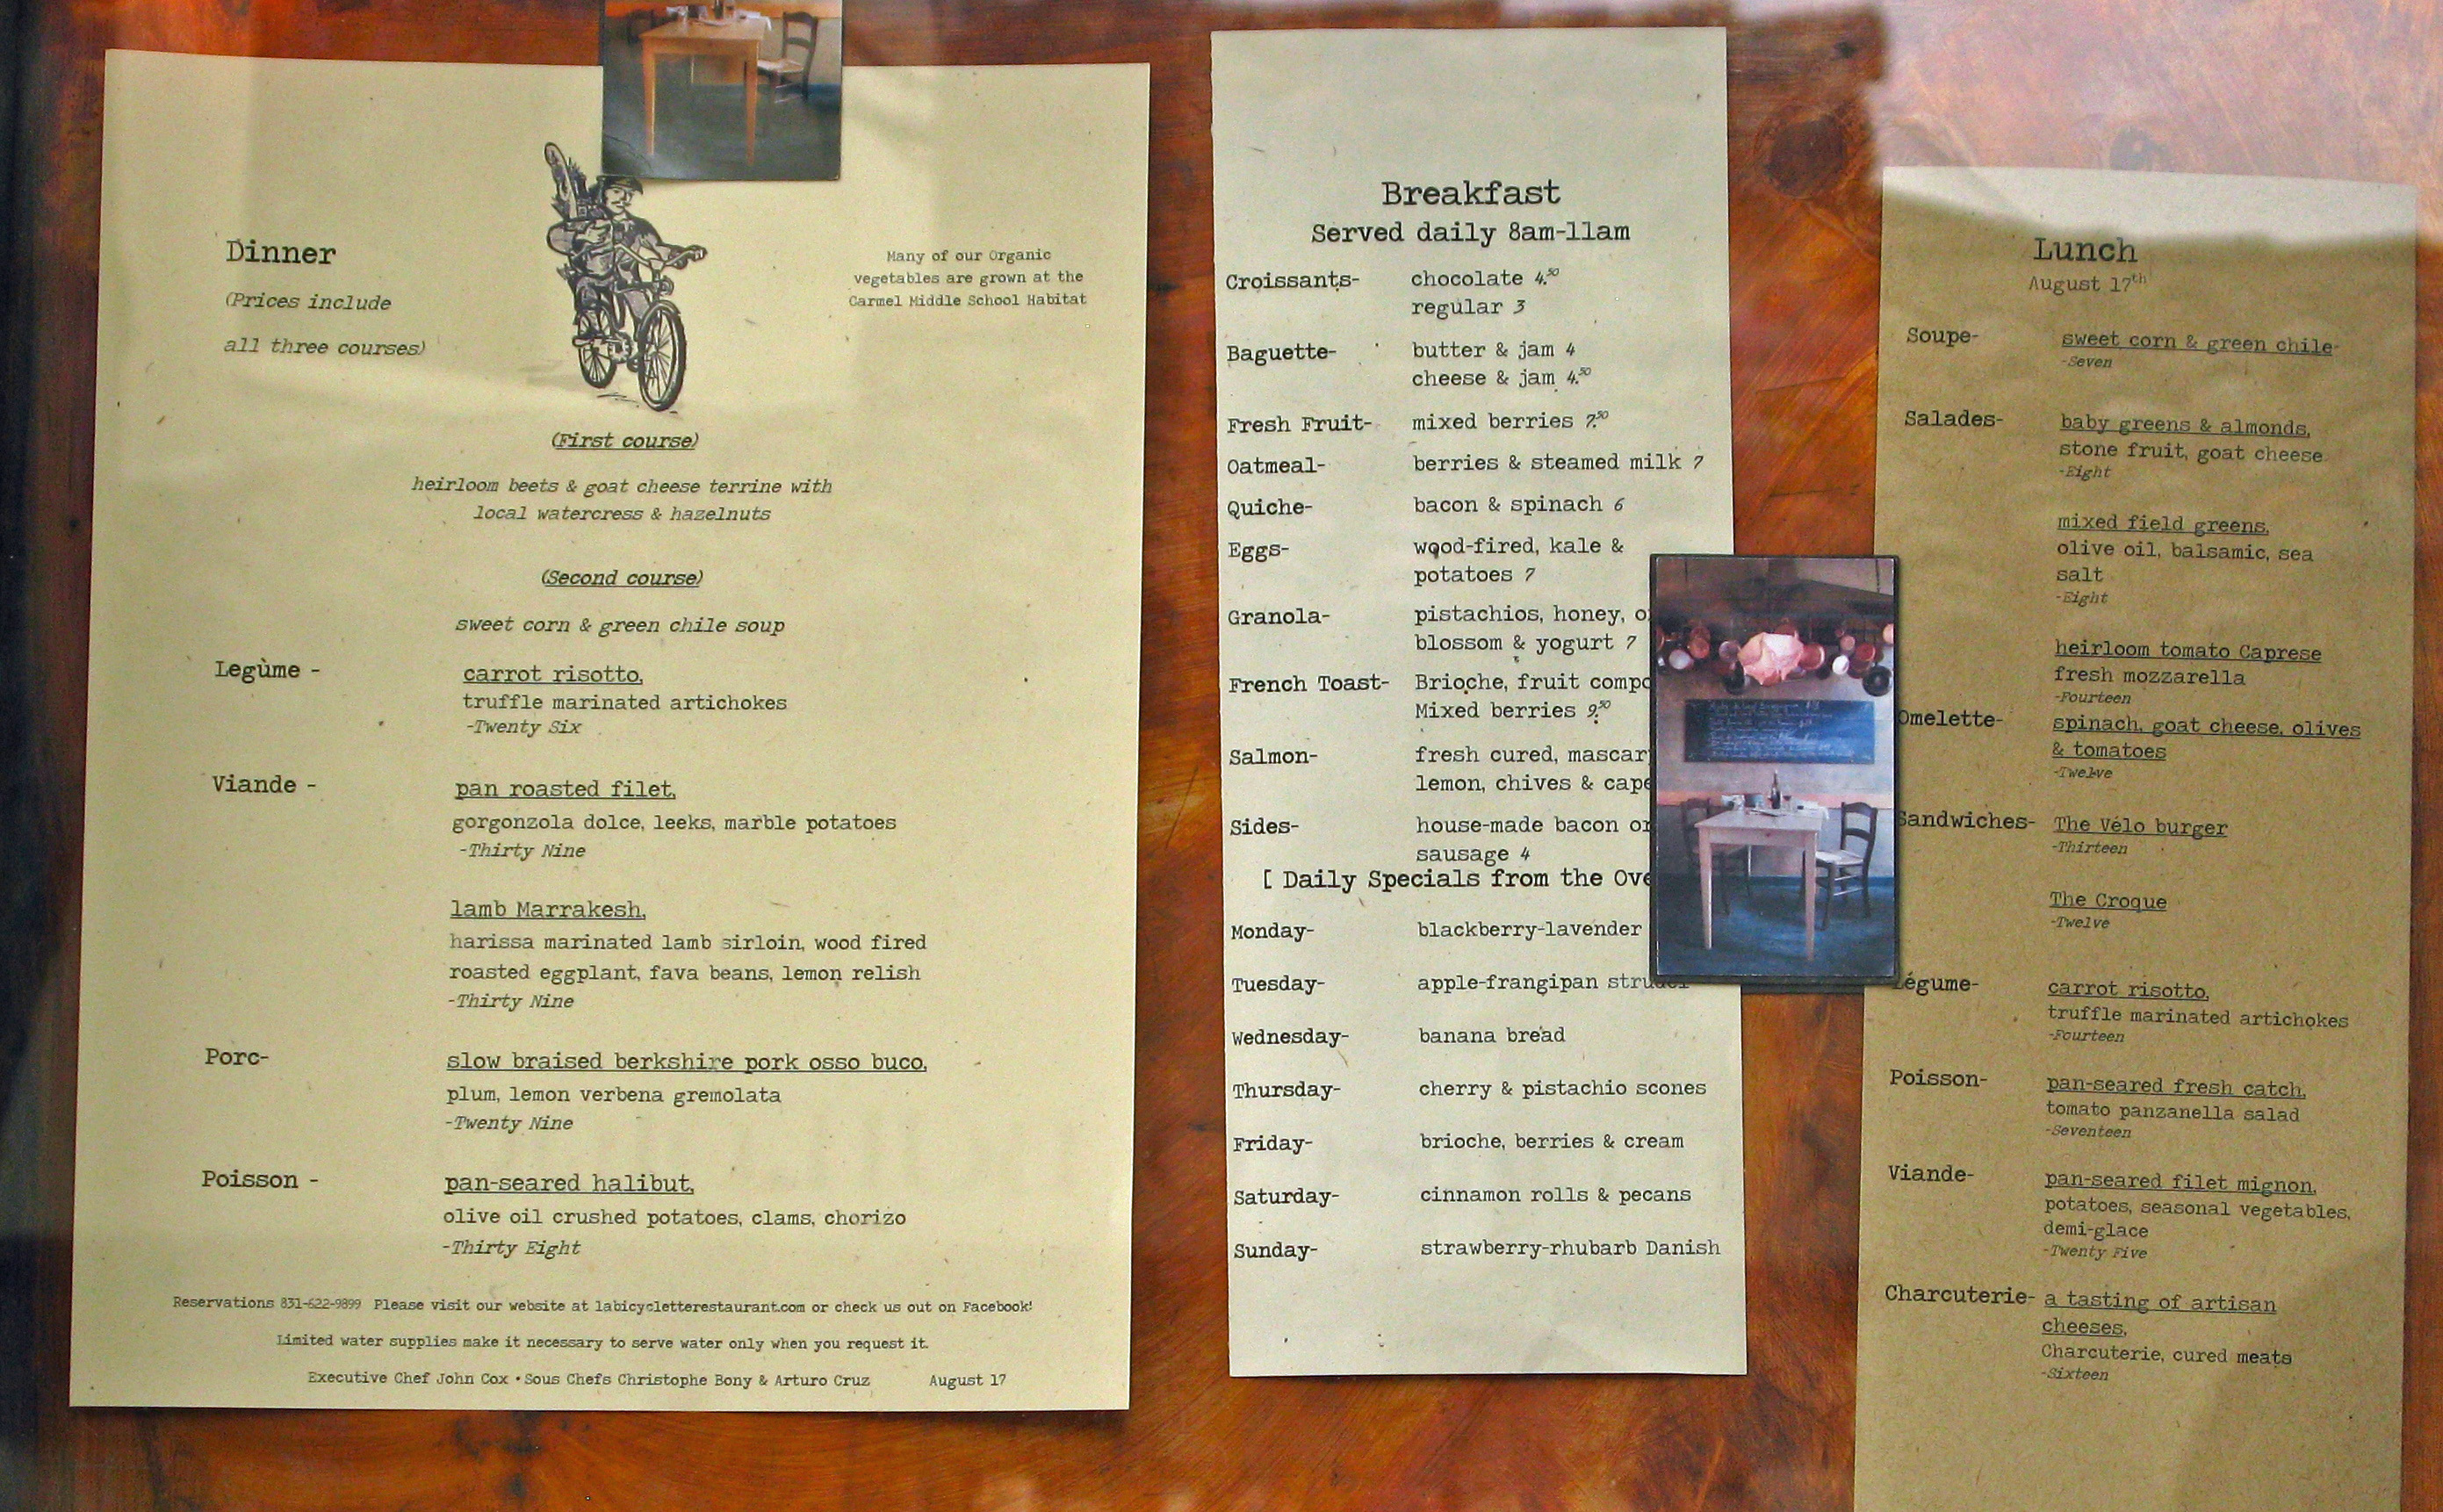 Dinner
(Prices include
all three courses)
Many of our Organic
vegetables are grown at the
Carmel Middle School Habitat
(First course)
heirloom beets & goat cheese terrine with
local watercress & hazelnuts
(Second course)
sweet corn & green chile soup
Legùme - carrot risotto,
truffle marinated artichokes
-Twenty Six
Viande - pan roasted filet,
gorgonzola dolce, leeks, marble potatoes
-Thirty Nine
lamb Marrakesh,
harissa marinated lamb sirloin, wood fired
roasted eggplant, fava beans, lemon relish
-Thirty Nine
Porc- slow braised berkshire pork osso buco,
plum, lemon verbena gremolata
-Twenty Nine
Poisson - pan-seared halibut,
olive oil crushed potatoes, clams, chorizo
-Thirty Eight
Reservations 831-622-9899 Please visit our website at labicycletterestaurant.com or check us out on Facebook!
Limited water supplies make it necessary to serve water only when you request it.
Executive Chef John Cox • Sous Chefs Christophe Bony & Arturo Cruz August 17
Breakfast
Served daily 8am-11am
Croissants- chocolate 4.50
regular 3
Baguette- butter & jam 4
cheese & jam 4.50
Fresh Fruit- mixed berries 7.50
Oatmeal- berries & steamed milk 7
Quiche- bacon & spinach 6
Eggs- wood-fired, kale &
potatoes 7
Granola- pistachios, honey,
blossom & yogurt 7
French Toast- Brioche, fruit
Mixed berries 9.50
Salmon- fresh cured,
lemon, chives &
Sides- house-made bacon
sausage 4
[ Daily Specials from the
Monday- blackberry-lavender
Tuesday- apple-frangipan strudel
Wednesday- banana bread
Thursday- cherry & pistachio scones
Friday- brioche, berries & cream
Saturday- cinnamon rolls & pecans
Sunday- strawberry-rhubarb Danish
Lunch
August 17th
Soupe- sweet corn & green chile-
-Seven
Salades- baby greens & almonds,
stone fruit, goat cheese
-Eight
mixed field greens,
olive oil, balsamic, sea
salt
-Eight
heirloom tomato Caprese
fresh mozzarella
-Fourteen
Omelette- spinach, goat cheese, olives
& tomatoes
-Twelve
Sandwiches- The Vélo burger
-Thirteen
The Croque
-Twelve
Légume- carrot risotto,
truffle marinated artichokes
-Fourteen
Poisson- pan-seared fresh catch,
tomato panzanella salad
-Seventeen
Viande- pan-seared filet mignon,
potatoes, seasonal vegetables,
demi-glace
-Twenty Five
Charcuterie- a tasting of artisan
cheeses,
Charcuterie, cured meats
-Sixteen